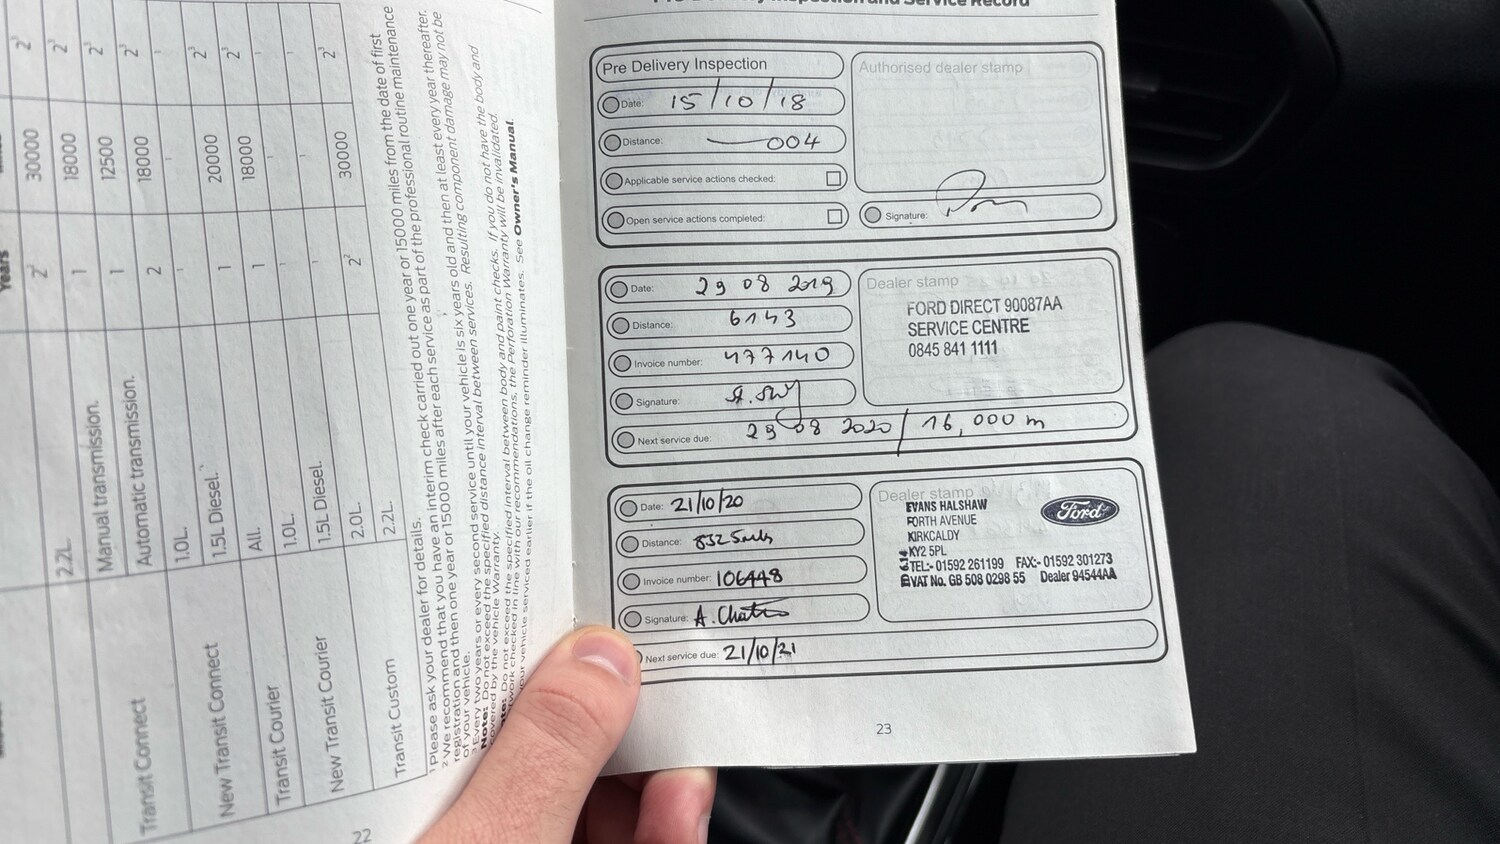 2³ 2³ 2³ 2³ ¹ 2³ 2³ ¹ ¹ 2³
30000 18000 12500 18000 ¹ 20000 18000 ¹ ¹ 30000
Years
2² 1 1 2 ¹ 1 1 ¹ 2²
2.2L
Manual transmission.
Automatic transmission.
1.0L
1.5L Diesel.
All.
1.0L
1.5L Diesel.
2.0L
2.2L
Transit Connect
New Transit Connect
Transit Courier
New Transit Courier
Transit Custom
¹ Please ask your dealer for details.
² We recommend that you have an interim check carried out one year or 15000 miles from the date of first
registration and then one year or 15000 miles after each service as part of the professional routine maintenance
of your vehicle.
³ Every two years or every second service until your vehicle is six years old and then at least every year thereafter.
Note: Do not exceed the specified distance interval between services. Resulting component damage may not be
covered by the vehicle Warranty.
Note: Do not exceed the specified interval between body and paint checks. If you do not have the body and
checked in line with our recommendations, the Perforation Warranty will be invalidated.
your vehicle serviced earlier if the oil change reminder illuminates. See Owner's Manual.
22
Pre Delivery Inspection and Service Record
Pre Delivery Inspection
Date: 15/10/18
Distance: 004
Applicable service actions checked:
Open service actions completed:
Authorised dealer stamp
Signature:
Date: 29 08 2019
Distance: 6143
Invoice number: 477140
Signature:
Next service due: 29 08 2020 / 16,000 m
Dealer stamp
FORD DIRECT 90087AA
SERVICE CENTRE
0845 841 1111
Date: 21/10/20
Distance:
Invoice number: 106448
Signature:
Next service due: 21/10/21
Dealer stamp
EVANS HALSHAW
FORTH AVENUE
KIRKCALDY
KY2 5PL
TEL:- 01592 261199 FAX:- 01592 301273
VAT No. GB 508 0298 55 Dealer 94544AA
Ford
23